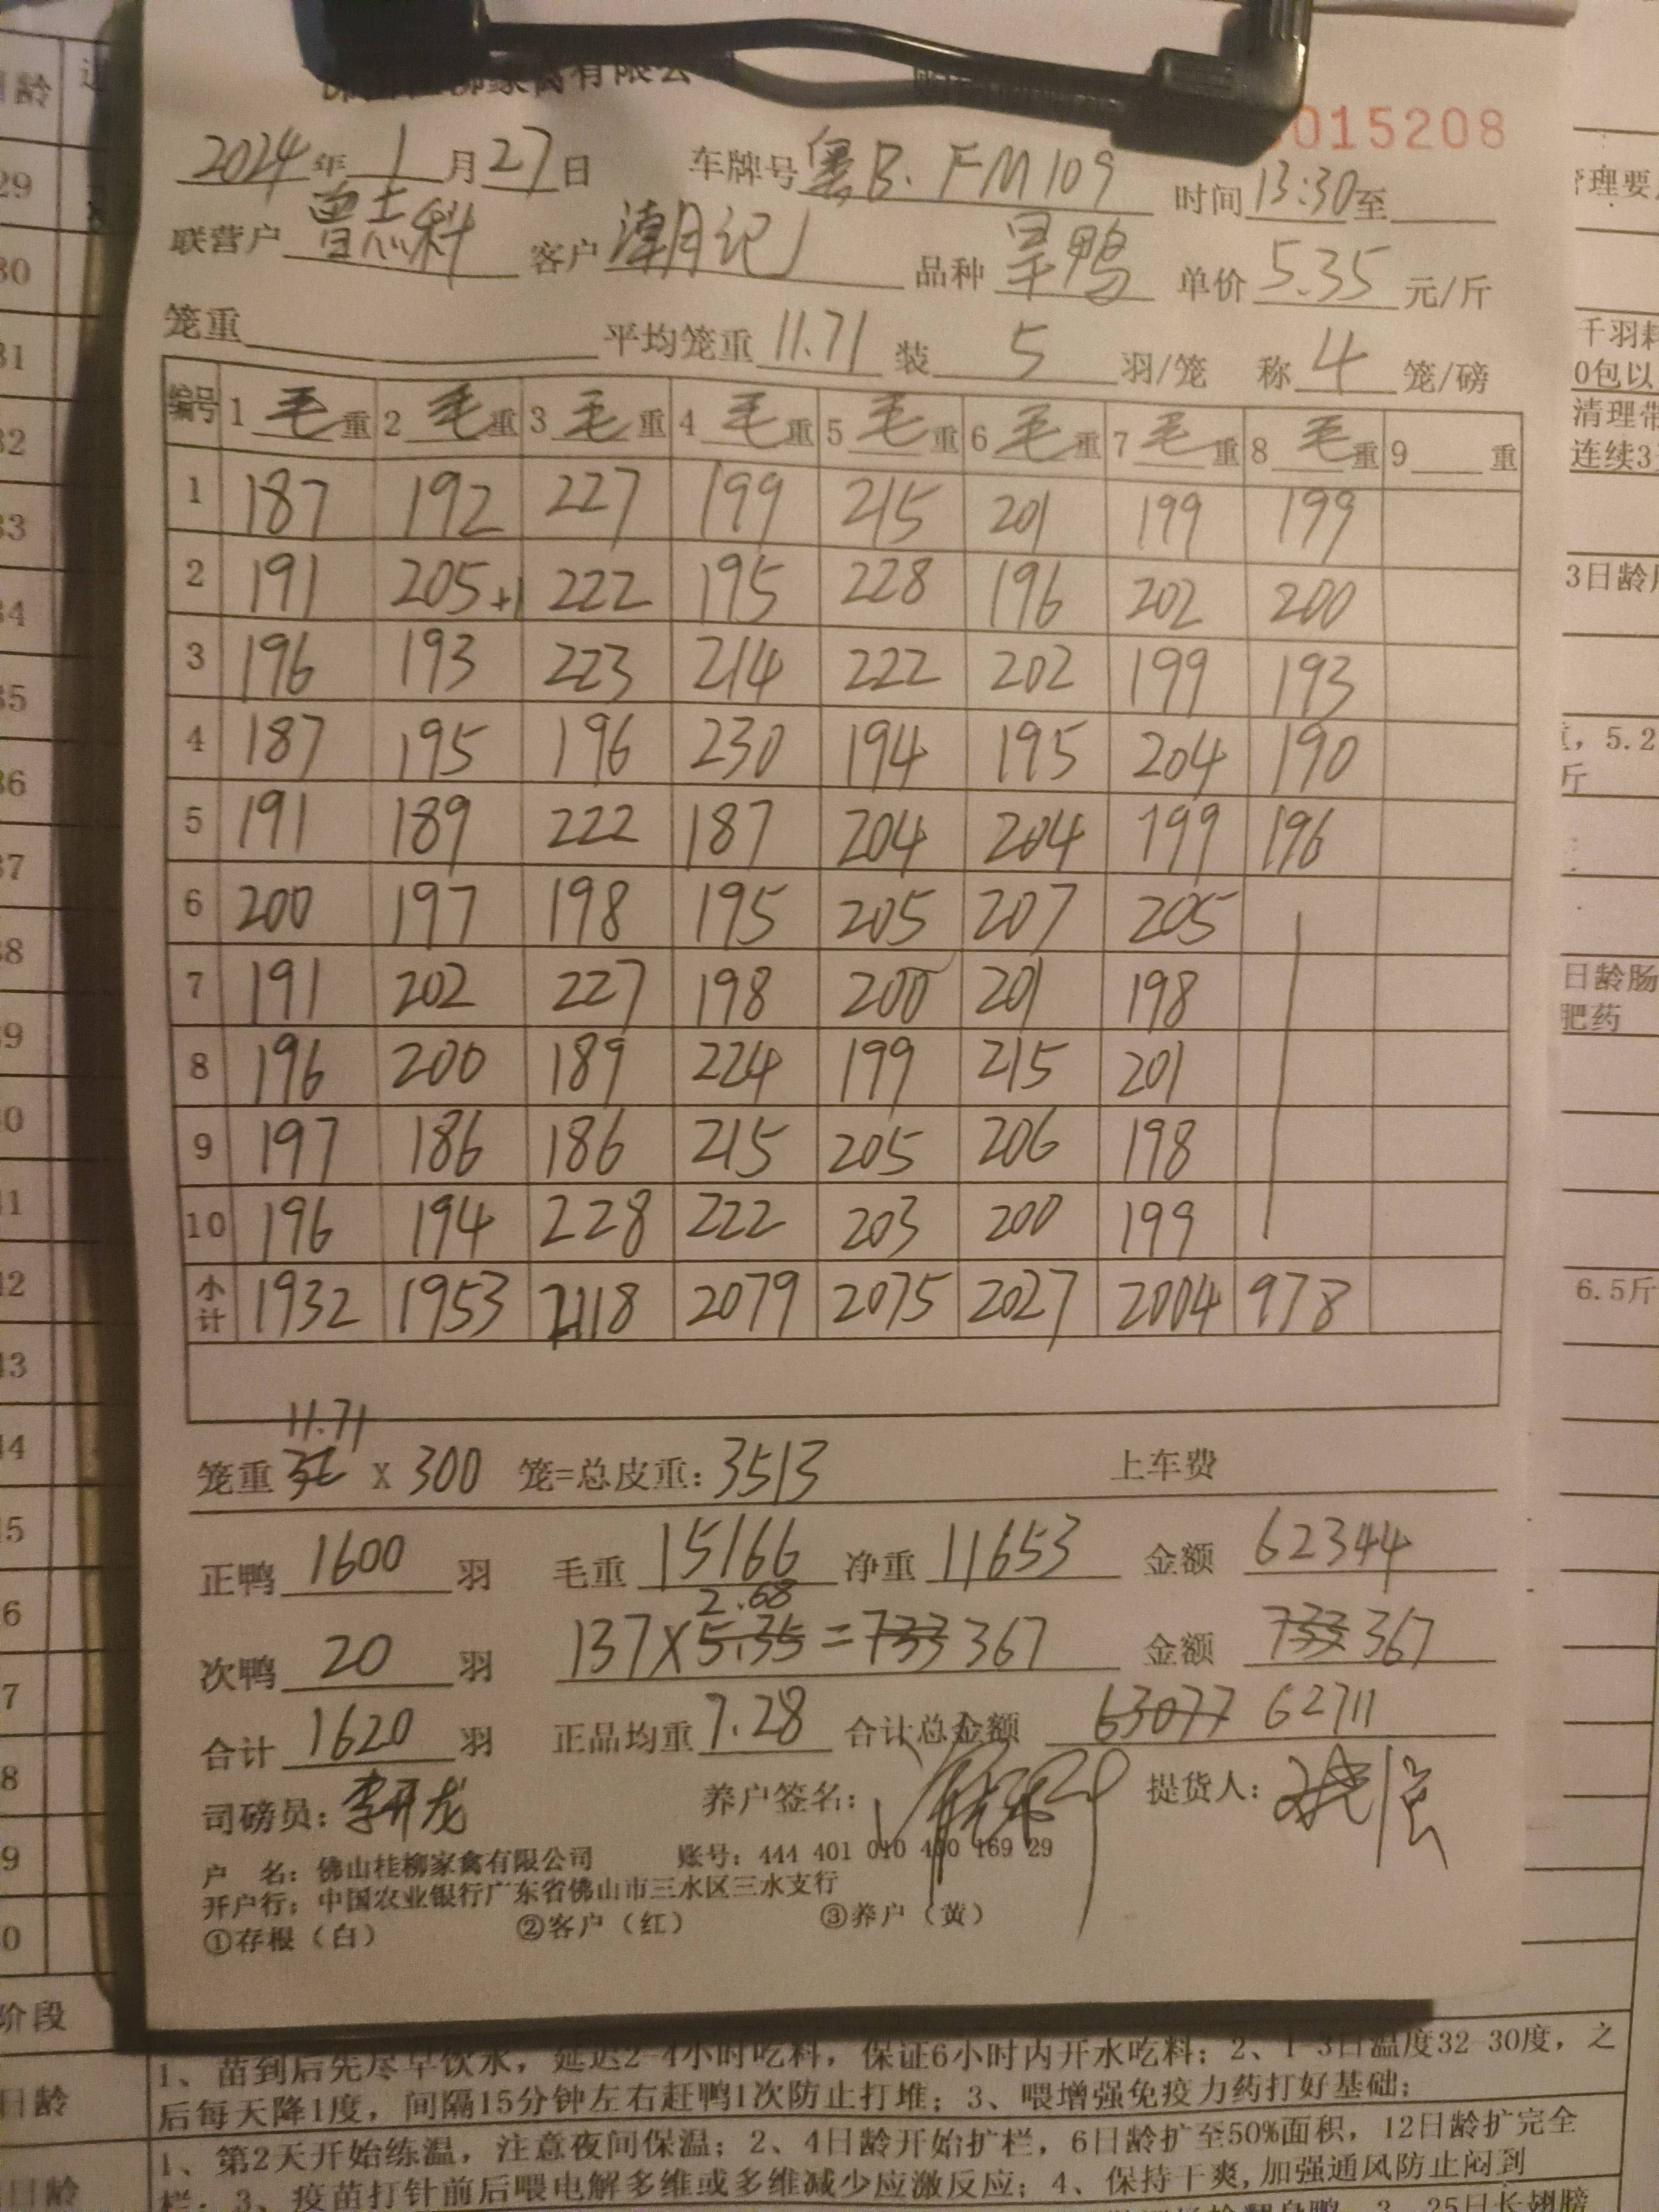 家禽有限公
015208
2024年1月27日 车牌号粤B.FM109 时间13:30至
联营户曾志科 客户潮记 品种旱鸭 单价5.35元/斤
笼重 平均笼重11.71 装5羽/笼 称4笼/磅
编号 1毛重 2毛重 3毛重 4毛重 5毛重 6毛重 7毛重 8毛重 9重
1 187 192 227 199 215 201 199 199
2 191 205+1 222 195 228 196 202 200
3 196 193 223 214 222 202 199 193
4 187 195 196 230 194 195 204 190
5 191 189 222 187 204 204 199 196
6 200 197 198 195 205 207 205
7 191 202 227 198 200 201 198
8 196 200 189 224 199 215 201
9 197 186 186 215 205 206 198
10 196 194 228 222 203 200 199
小计 1932 1953 2118 2079 2075 2027 2004 978
11.71
笼重 X 300 笼=总皮重:3513 上车费
正鸭1600羽 毛重15166 净重11653 金额62344
2.68
次鸭20羽 137×5.35=733 367 金额733 367
合计1620羽 正品均重7.28 合计总金额63077 62711
司磅员:李开龙 养户签名: 提货人:
户 名:佛山桂柳家禽有限公司 账号:444 401 010 400 169 29
开户行:中国农业银行广东省佛山市三水区三水支行
①存根(白) ②客户(红) ③养户(黄)
日龄
29
30
31
32
33
34
35
36
37
38
39
40
41
42
43
44
45
46
47
48
49
50
阶段
日龄
日龄
管理要
千羽料
0包以
清理带
连续3
3日龄
5.2
斤
日龄肠
肥药
6.5斤
1、苗到后先尽早饮水,延迟2-4小时吃料,保证6小时内开水吃料;2、1-3日温度32-30度,之
后每天降1度,间隔15分钟左右赶鸭1次防止打堆;3、喂增强免疫力药打好基础;
1、第2天开始练温,注意夜间保温;2、4日龄开始扩栏,6日龄扩至50%面积,12日龄扩完全
栏;3、疫苗打针前后喂电解多维或多维减少应激反应;4、保持干爽,加强通风防止闷到
25日长翅膀